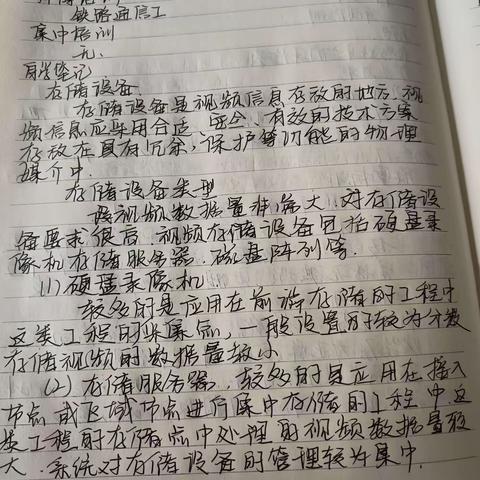 铁路通信工
集中培训
九.
自学笔记
存储设备.
存储设备是视频信息存放的地方.视
频信息应采用合适、安全、有效的技术方案
存放在具有冗余,保护等功能的物理
媒介中.
存储设备类型
该视频数据量非常大.对存储设
备要求很高.视频存储设备包括硬盘录
像机存储服务器.磁盘阵列等.
(1)硬盘录像机.
较多的是应用在前端存储的工程中
这类工程的采集点,一般设置的较为分散
存储视频的数据量较小
(2)存储服务器.较多的是应用在接入
节点或区域节点进行集中存储的工程中这
类工程的存储点中处理的视频数据量较
大.系统对存储设备的管理较为集中.